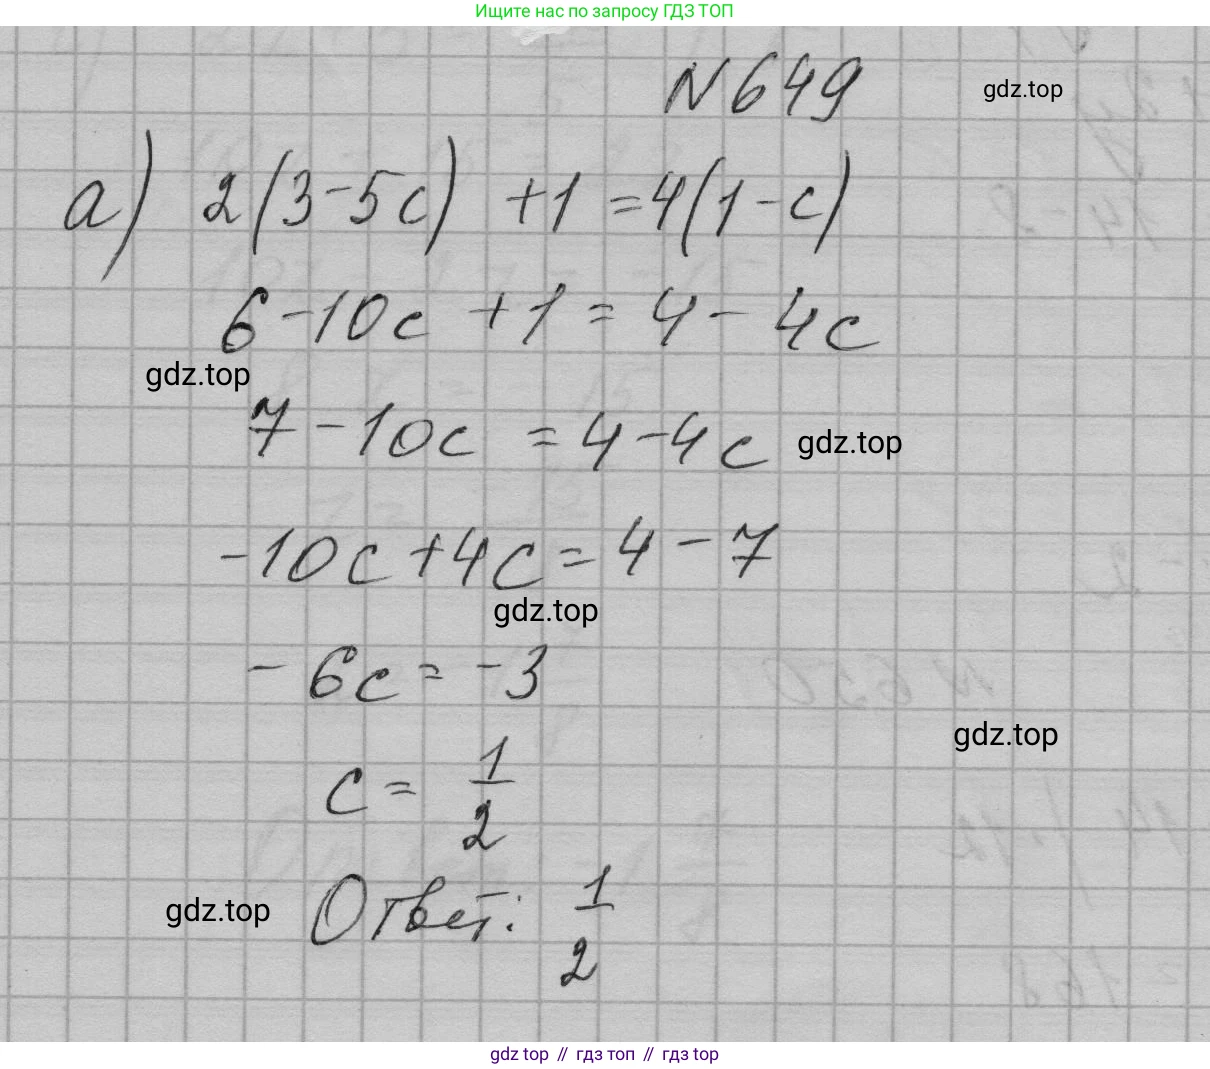 Ищите нас по запросу ГДЗ ТОП
N 649
gdz.top
а) 2(3-5c) +1 =4(1-c)
6-10c +1 = 4- 4c
gdz.top
7-10c = 4-4c
gdz.top
-10c+4c= 4-7
gdz.top
- 6c= -3
gdz.top
c = 1/2
gdz.top
Ответ: 1/2
gdz top // гдз топ // гдз top